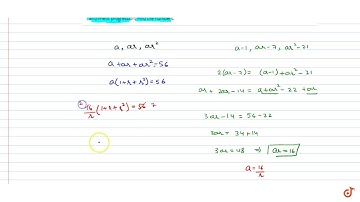 a, ar, ar²
a+ar+ar² = 56
a(1+r+r²) = 56
16/r (1+r+r²) = 56 7
a-1, ar-7, ar²-21
2(ar-7) = (a-1)+ar²-21
ar + 2ar-14 = a+ar²-22 +ar
3ar-14 = 56-22
3ar = 34+14
3ar = 48 ⇒ ar=16
a = 16/r